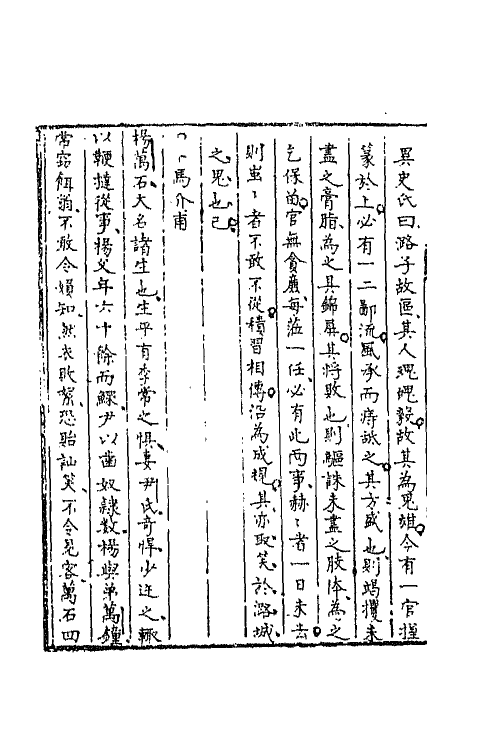 異史氏曰潞子故區其人魂魄毅故其為鬼雄今有一官握
篆於上必有一二鄙流風承而痔舐之其方盛也則竭攫未
盡之膏脂為之具錦屏其將敗也則驅誅未盡之肢体為之
乞保留官無貪廉每蒞一任必有此兩事赫〻者一日未去
則蚩〻者不敢不從積習相傳沿為成規其亦取笑於潞城
之鬼也已
馬介甫
楊萬石大名諸生也生平有季常之懼妻尹氏奇悍少迕之輒
以鞭撻從事楊父年六十餘而鰥尹以齒奴隸数楊與弟萬鐘
常竊餌翁不敢令婦知然衣敗絮恐貽訕笑不令見客萬石四